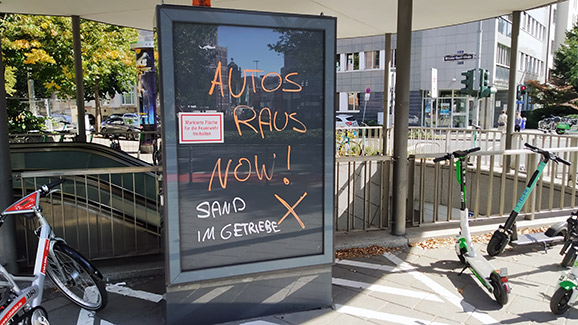 AUTOS
RAUS
NOW!
SAND
IM GETRIEBE
X
Markierte Fläche
für die Feuerwehr
freihalten